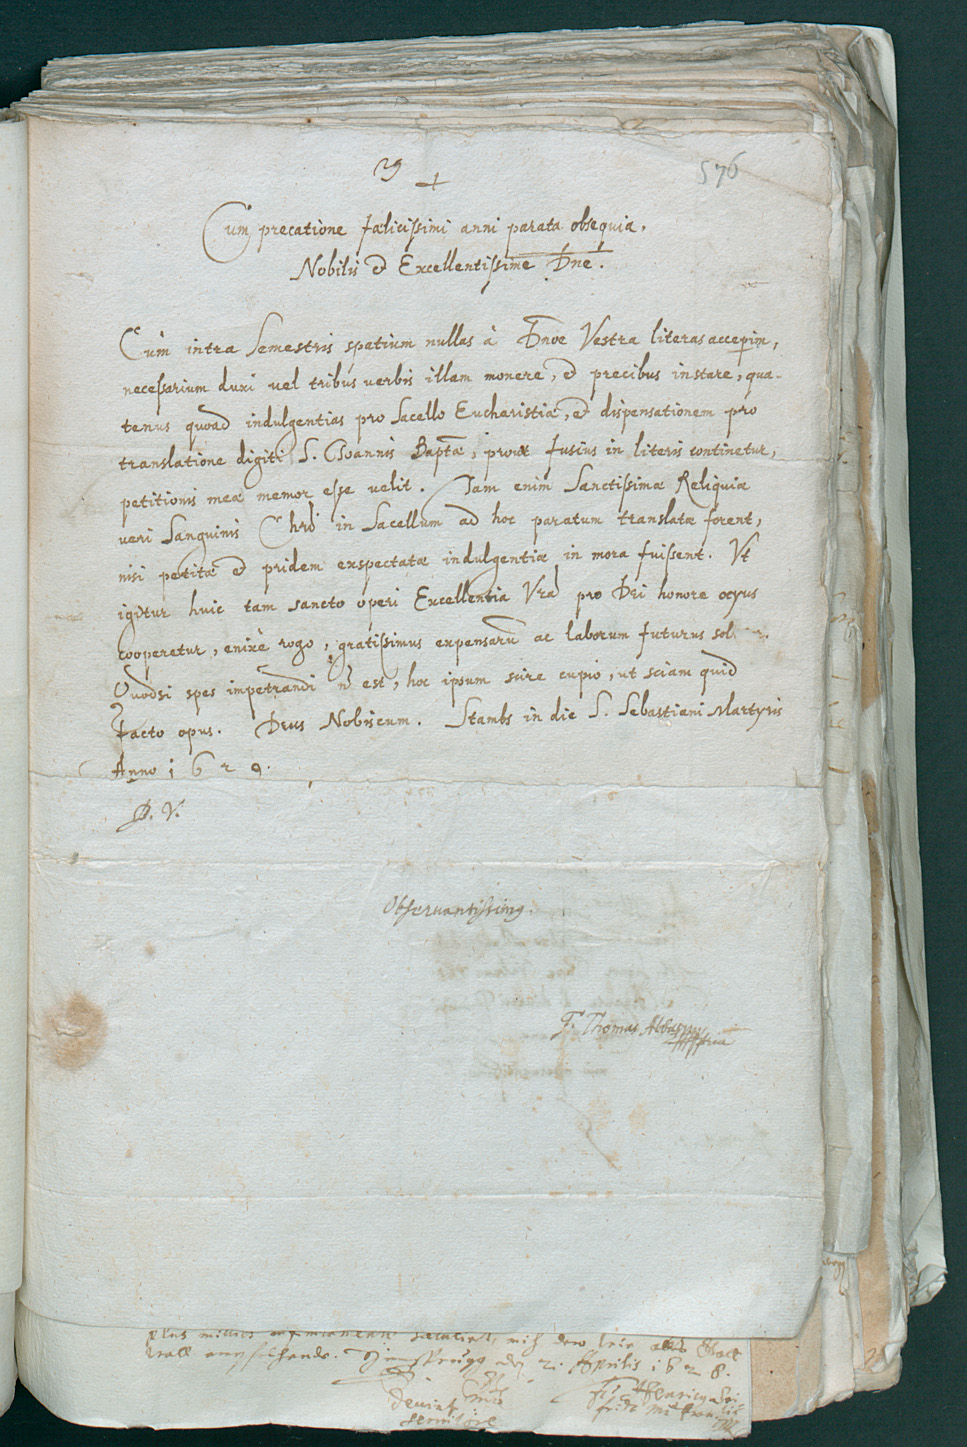 29
+
576
Cum precatione fælicissimi anni parata obsequia.
Nobilis et Excellentissime Dne.
Cum intra semestris spatium nullas à Dnõe Vestra literas acceperim,
necessarium duxi vel tribus verbis illam monere, et precibus instare, qua-
tenus quoad indulgentias pro Sacello Eucharistiæ, et dispensationem pro
translatione digiti S. Joannis Baptæ, prout fusius in literis continetur,
petitionis meæ memor esse velit. Jam enim Sanctissimæ Reliquiæ
veri Sanguinis Chrĩ in Sacellum ad hoc paratum translatæ forent,
nisi petitæ et pridem exspectatæ indulgentiæ in mora fuissent. Vt
igitur huic tam sancto operi Excellentia Vrã pro Dei honore ocyus
cooperetur, enixè rogo, gratissimus expensarũ ac laborum futurus
Quodsi spes impetrandi nõ est, hoc ipsum scire cupio, ut sciam quid
facto opus. Deus Nobiscum. Stambs in die S. Sebastiani Martyris
Anno 1629.
D. V.
Observantissimus.
F. Thomas Abbas mppria
plus millies salutat, mich dero
all Aprilis 1628.
servitore